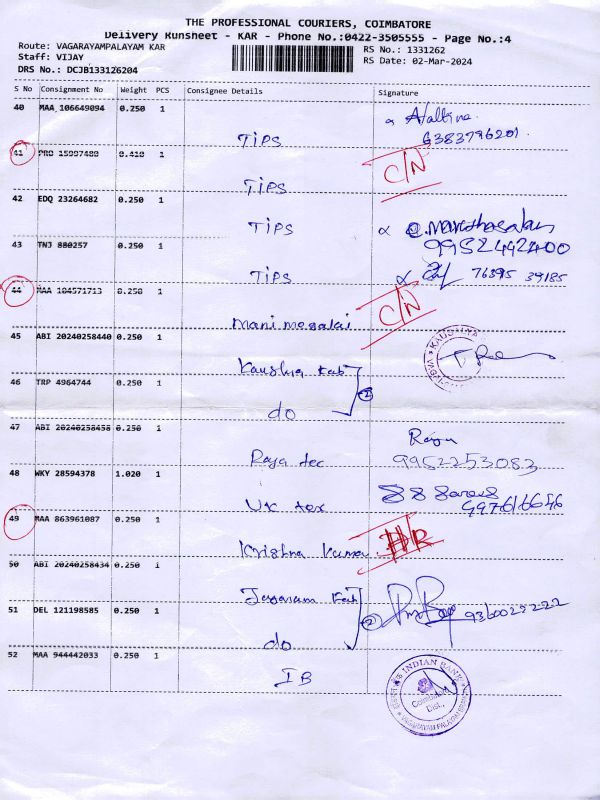 THE PROFESSIONAL COURIERS, COIMBATORE
Delivery Runsheet - KAR - Phone No.:0422-3505555 - Page No.:4
Route: VAGARAYAMPALAYAM KAR
RS No.: 1331262
Staff: VIJAY
RS Date: 02-Mar-2024
DRS No.: DCJB133126204
S No Consignment No Weight PCS Consignee Details Signature
40 MAA 106649094 0.250 1
6383796201
TIPS
41 PRO 15997480 0.410 1
C/N
TIPS
42 EDQ 23264682 0.250 1
TIPS
9952442400
43 TNJ 880257 0.250 1
TIPS
76395 39185
44 MAA 104571713 0.250 1
C/N
Manimegalai
45 ABI 20240258440 0.250 1
KAUSHIYA
Kaushiya Fab
46 TRP 4964744 0.250 1
2
do
47 ABI 20240258458 0.250 1
Raja tec
9952253083
48 WKY 28594378 1.020 1
UK tex
49 MAA 863961087 0.250 1
Krishna Kumar
50 ABI 20240258434 0.250 1
Jayaram Fab
51 DEL 121198585 0.250 1
2
do
52 MAA 944442033 0.250 1
IB
INDIAN BANK
Coimbatore
Dist.,
VAGARAYAM PALAYAM